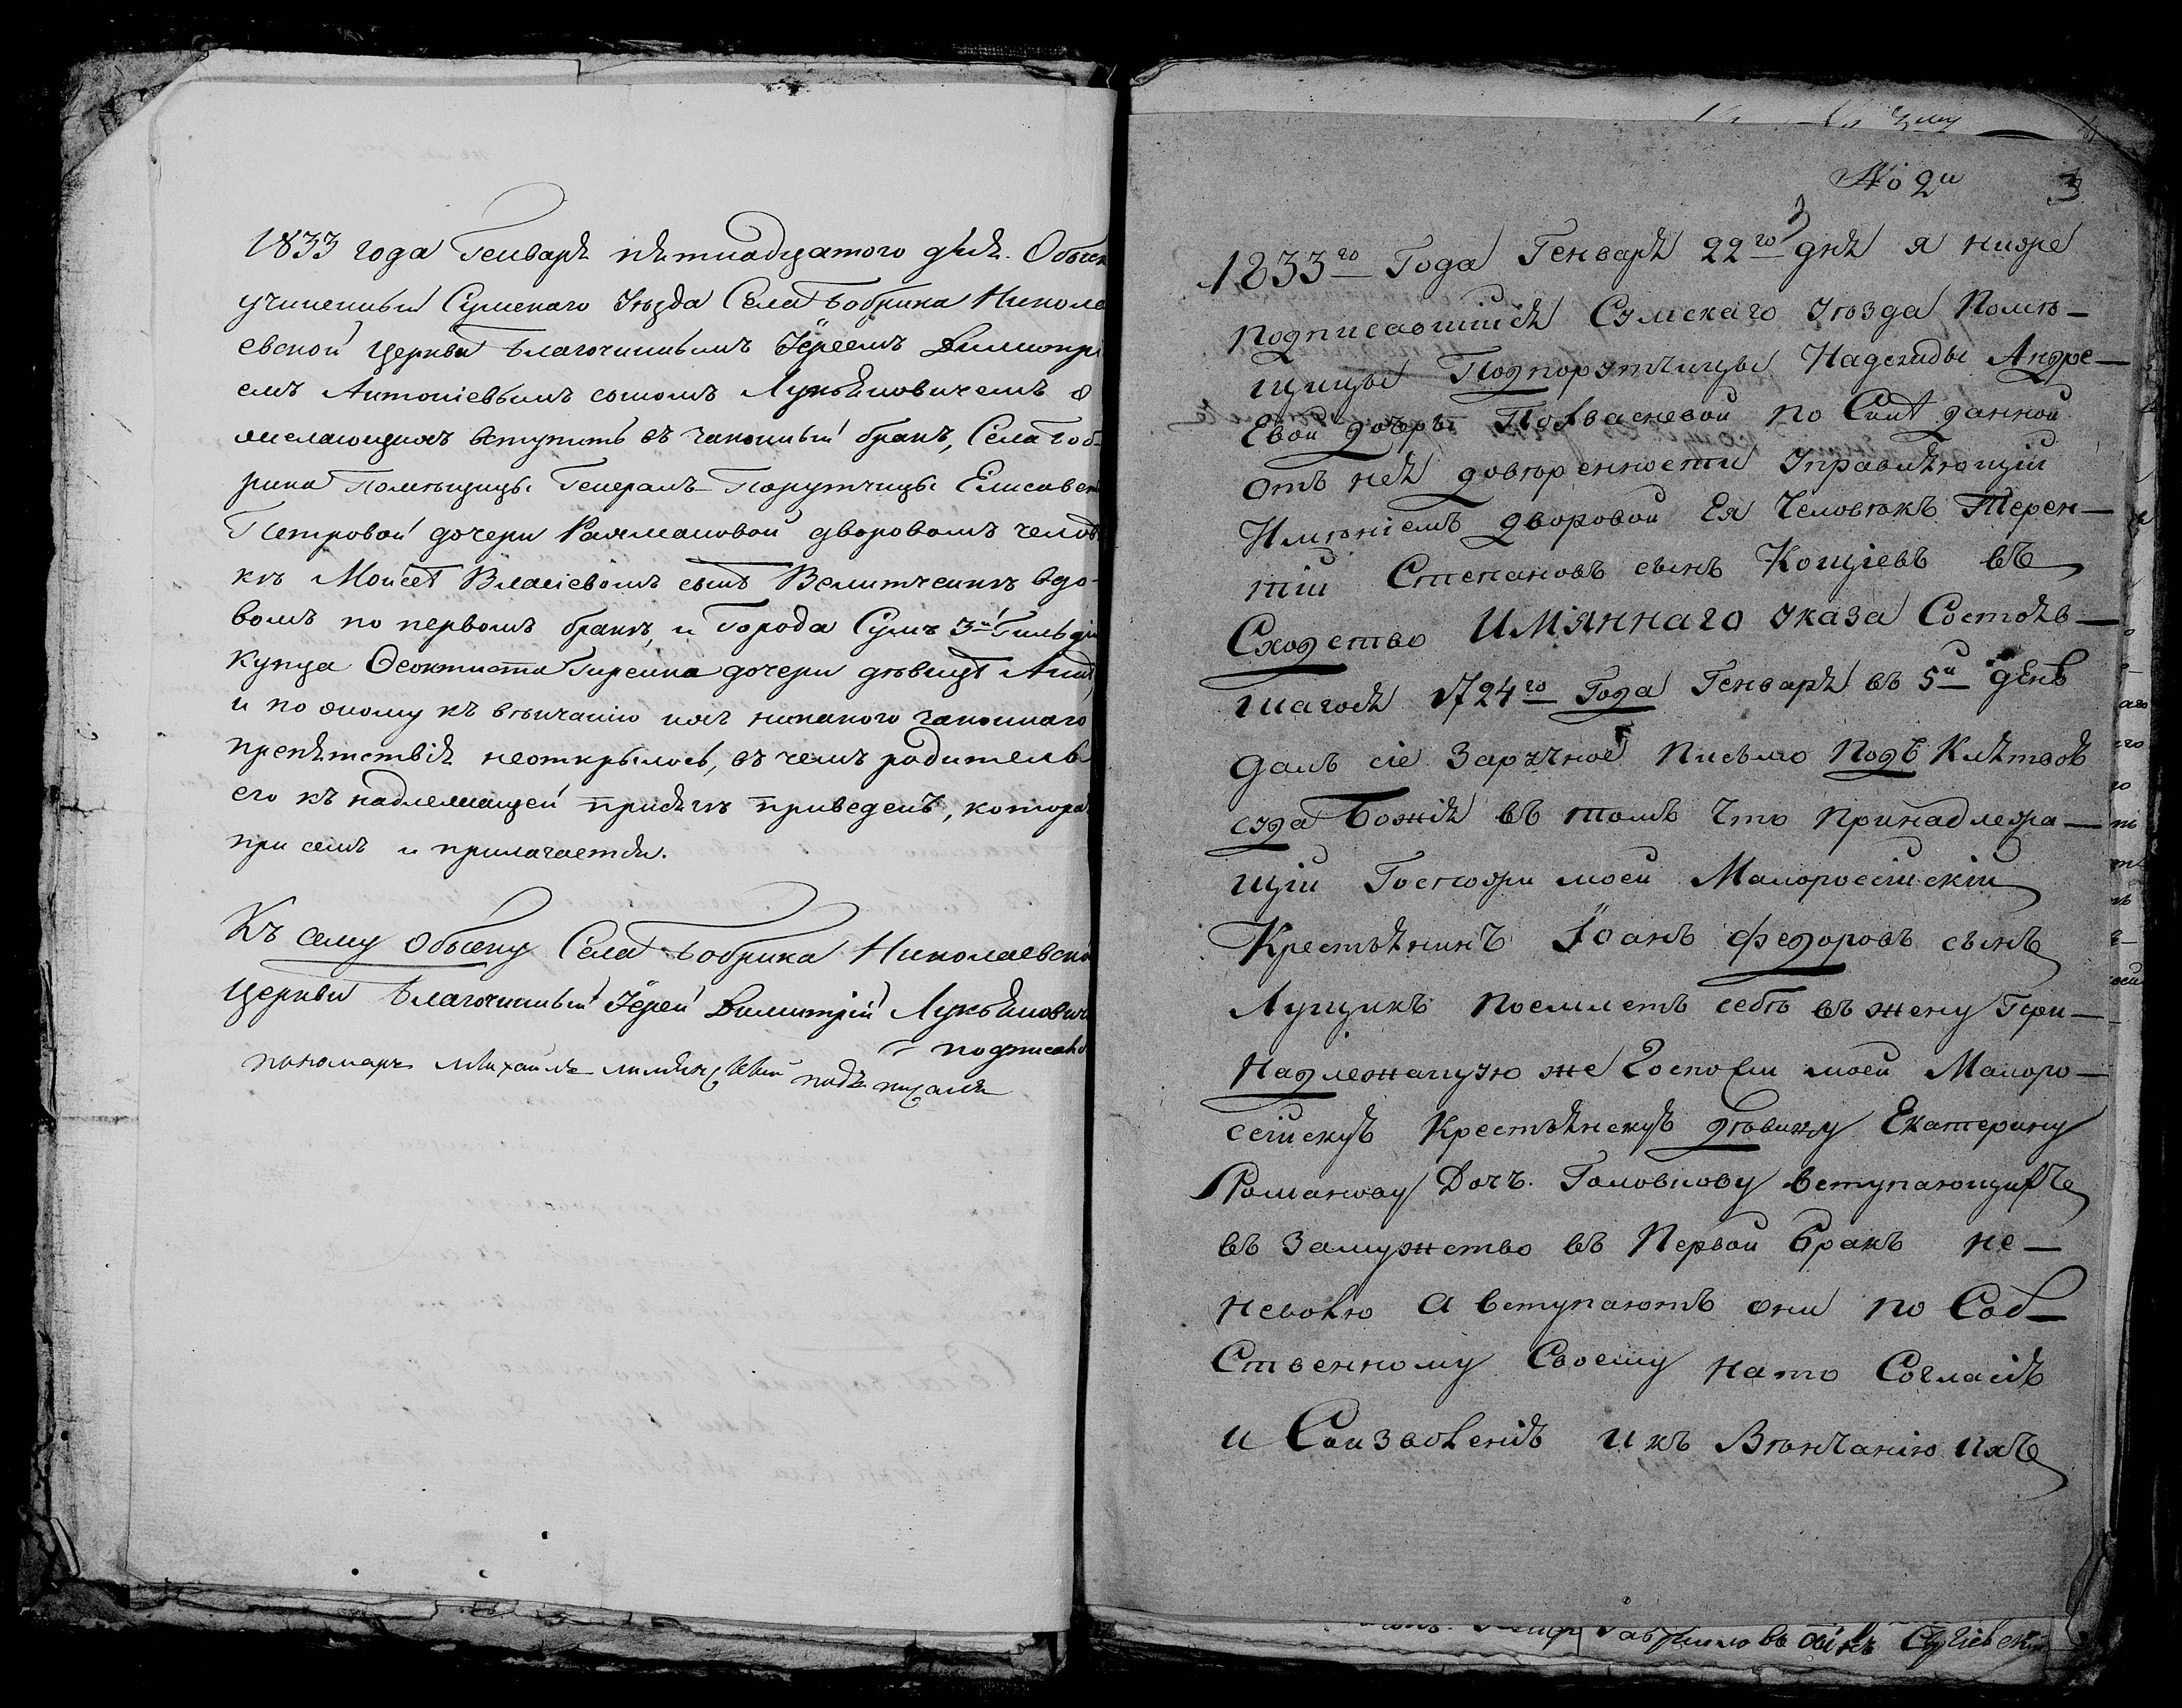 1833 года Генваря пятнадцатого дня. Обыск
учиненный Сумскаго Уѣзда Села Бобрика Никола
евской Церкви Благочиннымъ Іереемъ Димитрі
емъ Антоніевымъ сыномъ Лукьяновичемъ о
желающихъ вступить въ законный бракъ, Села Боб-
рика Помѣщицы Генералъ-Порутчицы Елисавет
Петровой дочери Рахмановой дворовомъ челов
кѣ Моѵсеѣ Власіевомъ сынѣ вдо-
вомъ по первомъ бракѣ, и Города Сумъ 3й Гильдіи
купца Феоктиста дочери дѣвицѣ Аннѣ,
и по оному къ вѣнчанію ихъ никакого законнаго
препятствія неоткрылось, въ чемъ родитель
его къ надлежащей присягѣ приведенъ, котора
при семъ и прилагается.
Къ сему Обыску Села Бобрика Николаевско
Церкви Благочинный Іерей Димитрій Лукьянович
подписалъ
пономарь Михаилъ подъписалъ
№ 2й 3
1833го Года Генваря 22го дня я ниже
подписавшийся Сумскаго уѣзда Помѣ-
щицы Подпорутчицы Надежды Андре-
Евой дочери по Силѣ данной
отъ нея довѣренности управляющій
Имѣніемъ дворовой Ея Человѣкъ Терен-
тій Степановъ сынъ Кощіевъ въ
Сходство Имяннаго указа Состояв-
шагося 1724го Года Генваря въ 5й день
далъ сіе Заручное Письмо Подъ Клятвою
суда Божія въ томъ что Принадлежа-
щій Госпожи моей Малороссійскій
Крестьянинъ Іоанъ Федоровъ сынъ
Лущикъ поемлетъ себѣ въ жену При-
Надлежащую же Госпожи моей Малоро-
сійскую Крестьянскую дѣвицу Екатерину
Романову Дочь Головнову вступающихъ
въ Замужство въ Первой Бракъ не-
неволю а вступаютъ они по Соб-
Ственному Своему на то Согласію
и Соизволенію и къ Вѣнчанію ихъ